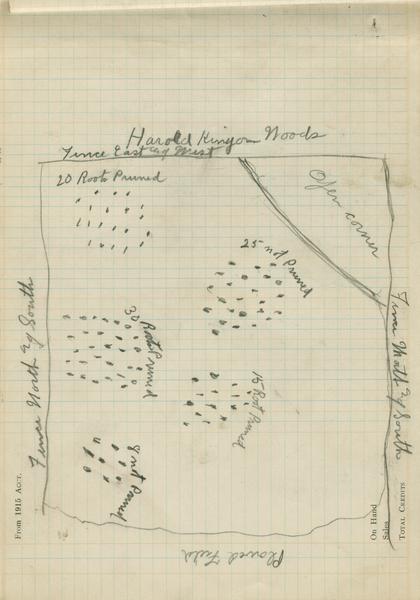 Harold Kinyon Woods
Fence East & West
20 Root Pruned
Open corner
25 not Pruned
30
Root Pruned
15 Root Pruned
8 not Pruned
Fence North & South
Fence North & South
Plowed Field
From 1915 Acct.
On Hand
Sales
Total Credits